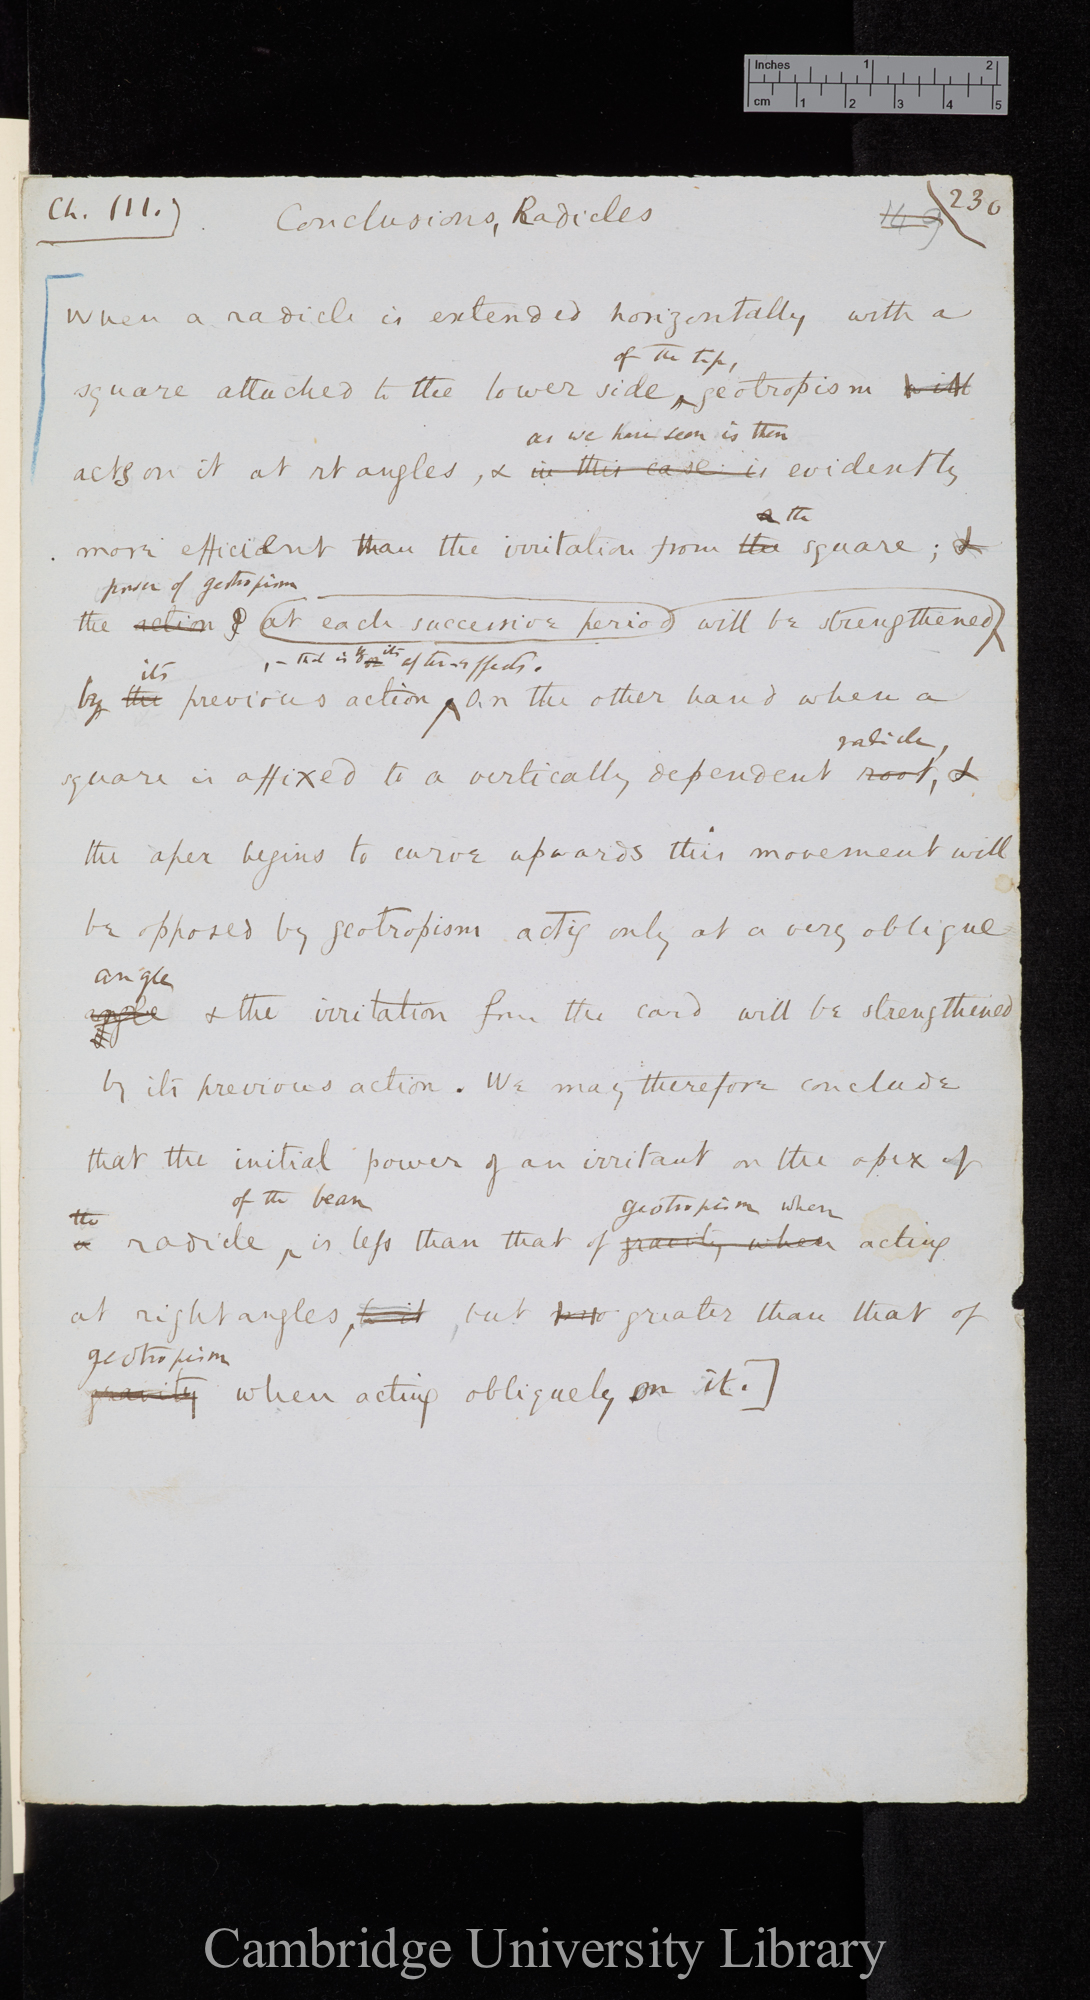 Inches 1 2
cm 1 2 3 4 5
Ch. III.) Conclusions, Radicles 149 230
When a radicle is extended horizontally with a
of the tip,
square attached to the lower side, geotropism will
as we have seen is then
acts on it at rt angles, & in this case is evidently
a the
more efficient than the irritation from the square; &
power of geotropism
the action at each successive period will be strengthened
its , – that is by its after-effects.
by the previous action. On the other hand when a
radicle,
square is affixed to a vertically dependent root, &
the apex begins to curve upwards this movement will
be opposed by geotropism actig only at a very oblique
angle
angle & the irritation from the card will be strengthened
by its previous action. We may therefore conclude
that the initial power of an irritant on the apex of
the of the bean geotropism when
a radicle, is less than that of gravity when acting
at right angles, but , but greater than that of
geotropism
gravity when acting obliquely on it.]
Cambridge University Library